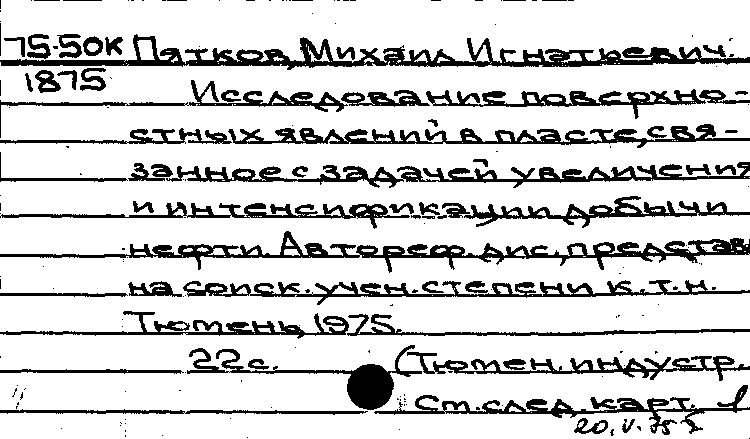 75-50К Пятков, Михаил Игнатьевич.
1875
Исследование поверхно-
стных явлений в пласте, свя-
занное с задачей увеличения
и интенсификации добычи
нефти. Автореф. дис., представл
на соиск. учен. степени к.т.н.
Тюмень, 1975.
22 с. (Тюмен. индустр.
См. след. карт.
20.V.75